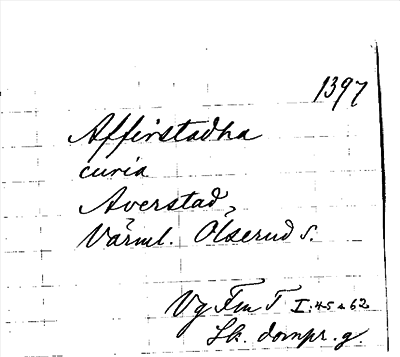 1397
Affirstadha
curia
Averstad,
Värml. Ölserud s.
Vg Fm T I:4-5 s. 62
Sk. dompr. g.